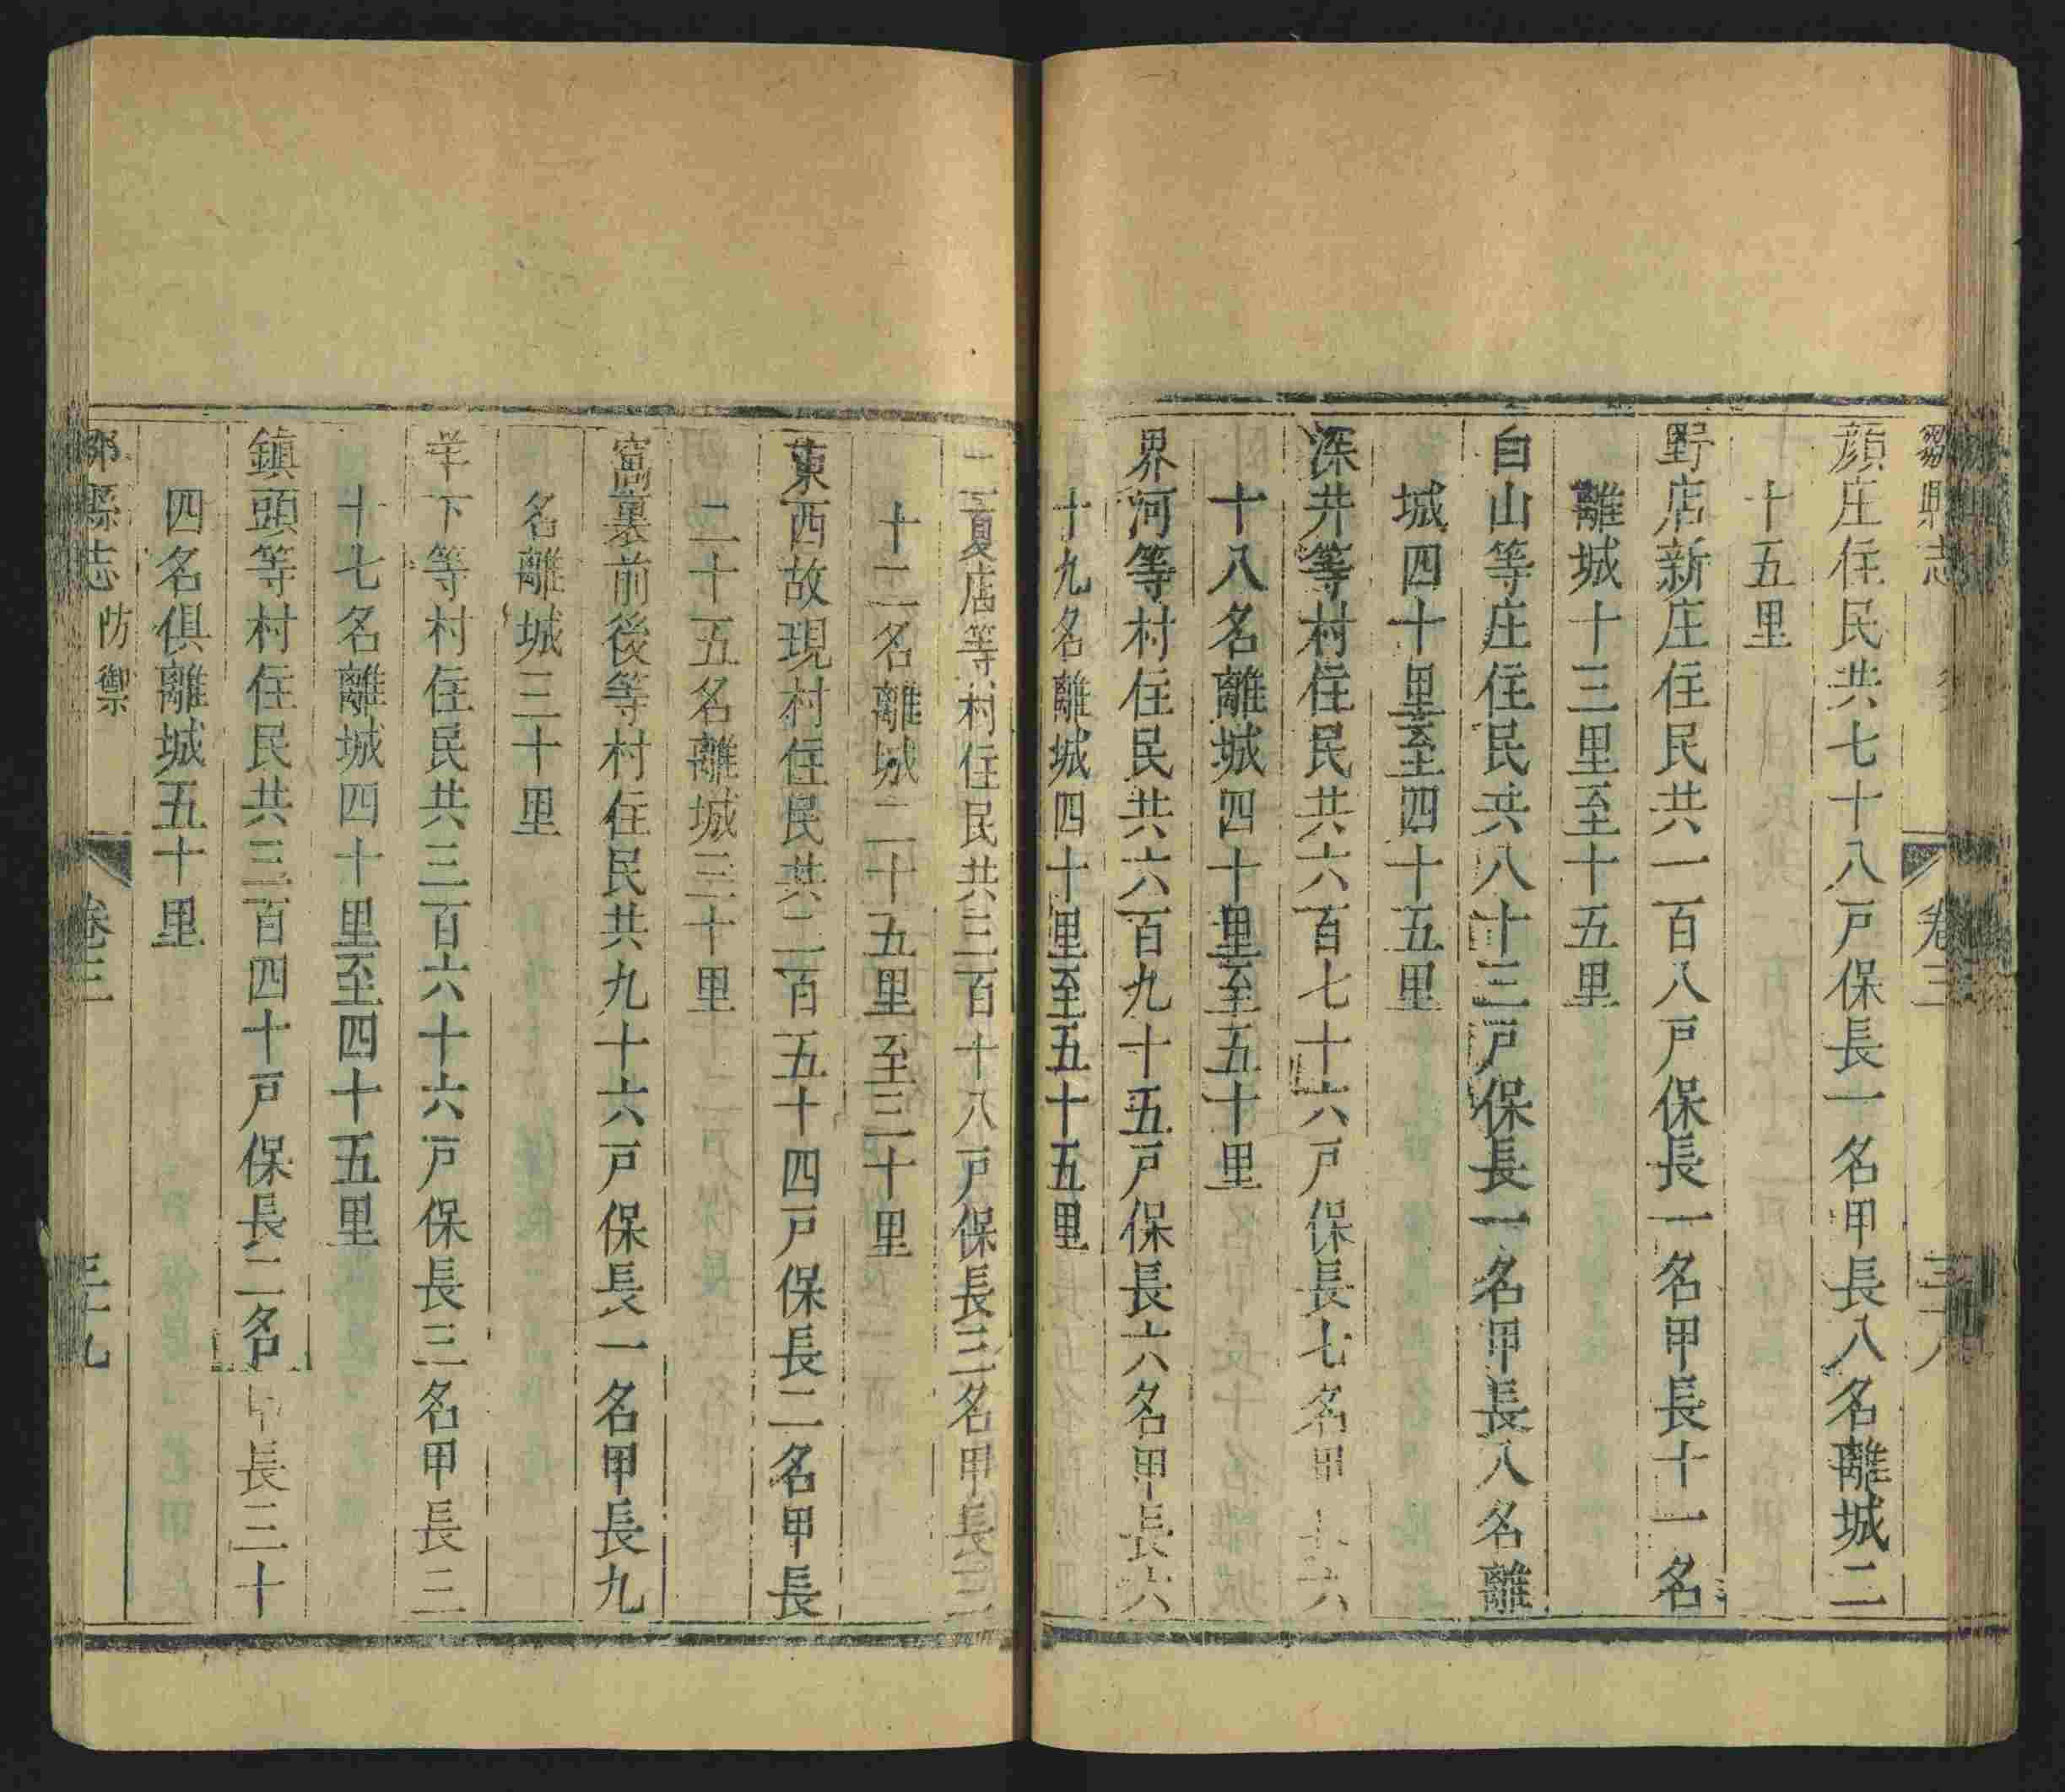 顔庄住民共七十八戸保長一名甲長八名離城二
十五里
野店新庄住民共一百八戸保長一名甲長十一名
離城十三里至十五里
白山等庄住民共八十三戸保長一名甲長八名離
城四十里至四十五里
深井等村住民共六百七十六戸保長七名甲長六
十八名離城四十里至五十里
界河等村住民共六百九十五戸保長六名甲長六
十九名離城四十里至五十五里
二夏店等村住民共三百十八戸保長三名甲長三
十二名離城二十五里至三十里
東西故現村住民共二百五十四戸保長二名甲長
二十五名離城三十里
窩裏前後等村住民共九十六戸保長一名甲長九
名離城三十里
羊下等村住民共三百六十六戸保長三名甲長三
十七名離城四十里至四十五里
鎮頭等村住民共三百四十戸保長二名甲長三十
四名俱離城五十里
鄒縣志 防禦 卷三 三十九